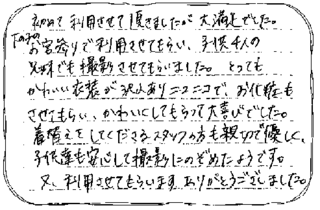 初めて利用させて頂きましたが大満足でした。
下の子の
お宮参りで利用させてもらい、子供4人の
兄妹でも撮影させてもらいました。とっても
かわいい衣装が沢山ありニコニコで、お化粧も
させてもらい、かわいくしてもらって大喜びでした。
着替えをしてくださるスタッフの方も親切で優しく、
子供達も安心して撮影にのぞめたようです。
又、利用させてもらいます。ありがとうございました。